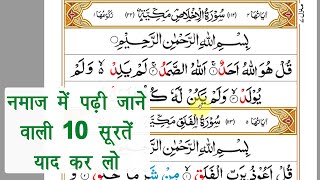 سُوْرَةُ الْاِخْلَاصِ مَكِّيَّةٌ
بِسْمِ اللّٰهِ الرَّحْمٰنِ الرَّحِيْمِ
قُلْ هُوَ اللّٰهُ اَحَدٌ اَللّٰهُ الصَّمَدُ لَمْ يَلِدْ وَلَمْ
يُوْلَدْ وَلَمْ يَكُنْ لَّهٗ
سُوْرَةُ الْفَلَقِ مَكِّيَّةٌ
بِسْمِ اللّٰهِ الرَّحْمٰنِ الرَّحِيْمِ
قُلْ اَعُوْذُ بِرَبِّ الْفَلَقِ مِنْ شَرِّ
नमाज में पढ़ी जाने
वाली 10 सूरतें
याद कर लो